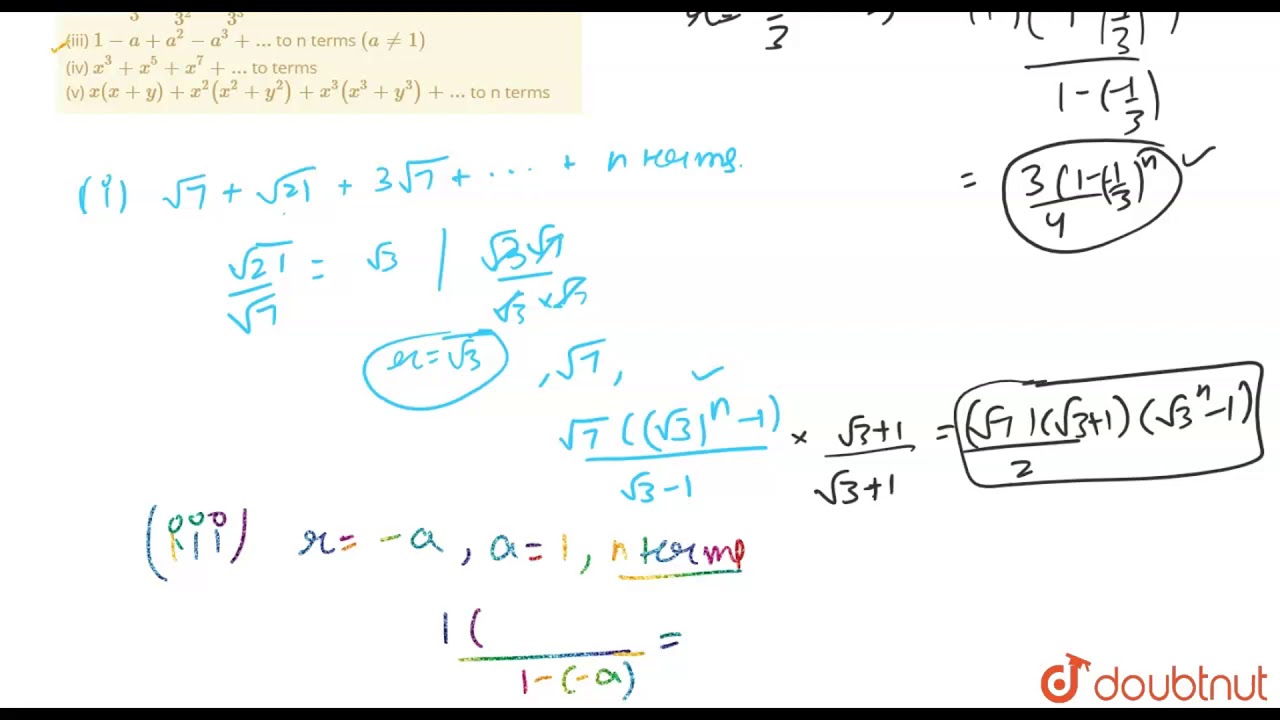 3 3² 3³
(iii) 1 − a + a² − a³ + ... to n terms (a ≠ 1)
(iv) x³ + x⁵ + x⁷ + ... to terms
(v) x(x + y) + x²(x² + y²) + x³(x³ + y³) + ... to n terms
3
3
1-(-1/3)
= 3(1-(-1/3)ⁿ)/4 ✓
(i) √7 + √21 + 3√7 + ... + n terms.
√21/√7 = √3 | √3√7/√3×√3
r=√3 , √7 , ✓
√7((√3)ⁿ-1)/√3-1 × √3+1/√3+1 = (√7)(√3+1)(√3ⁿ-1)/2
(iii) r= -a , a=1 , n terms
1( /1-(-a) =
doubtnut